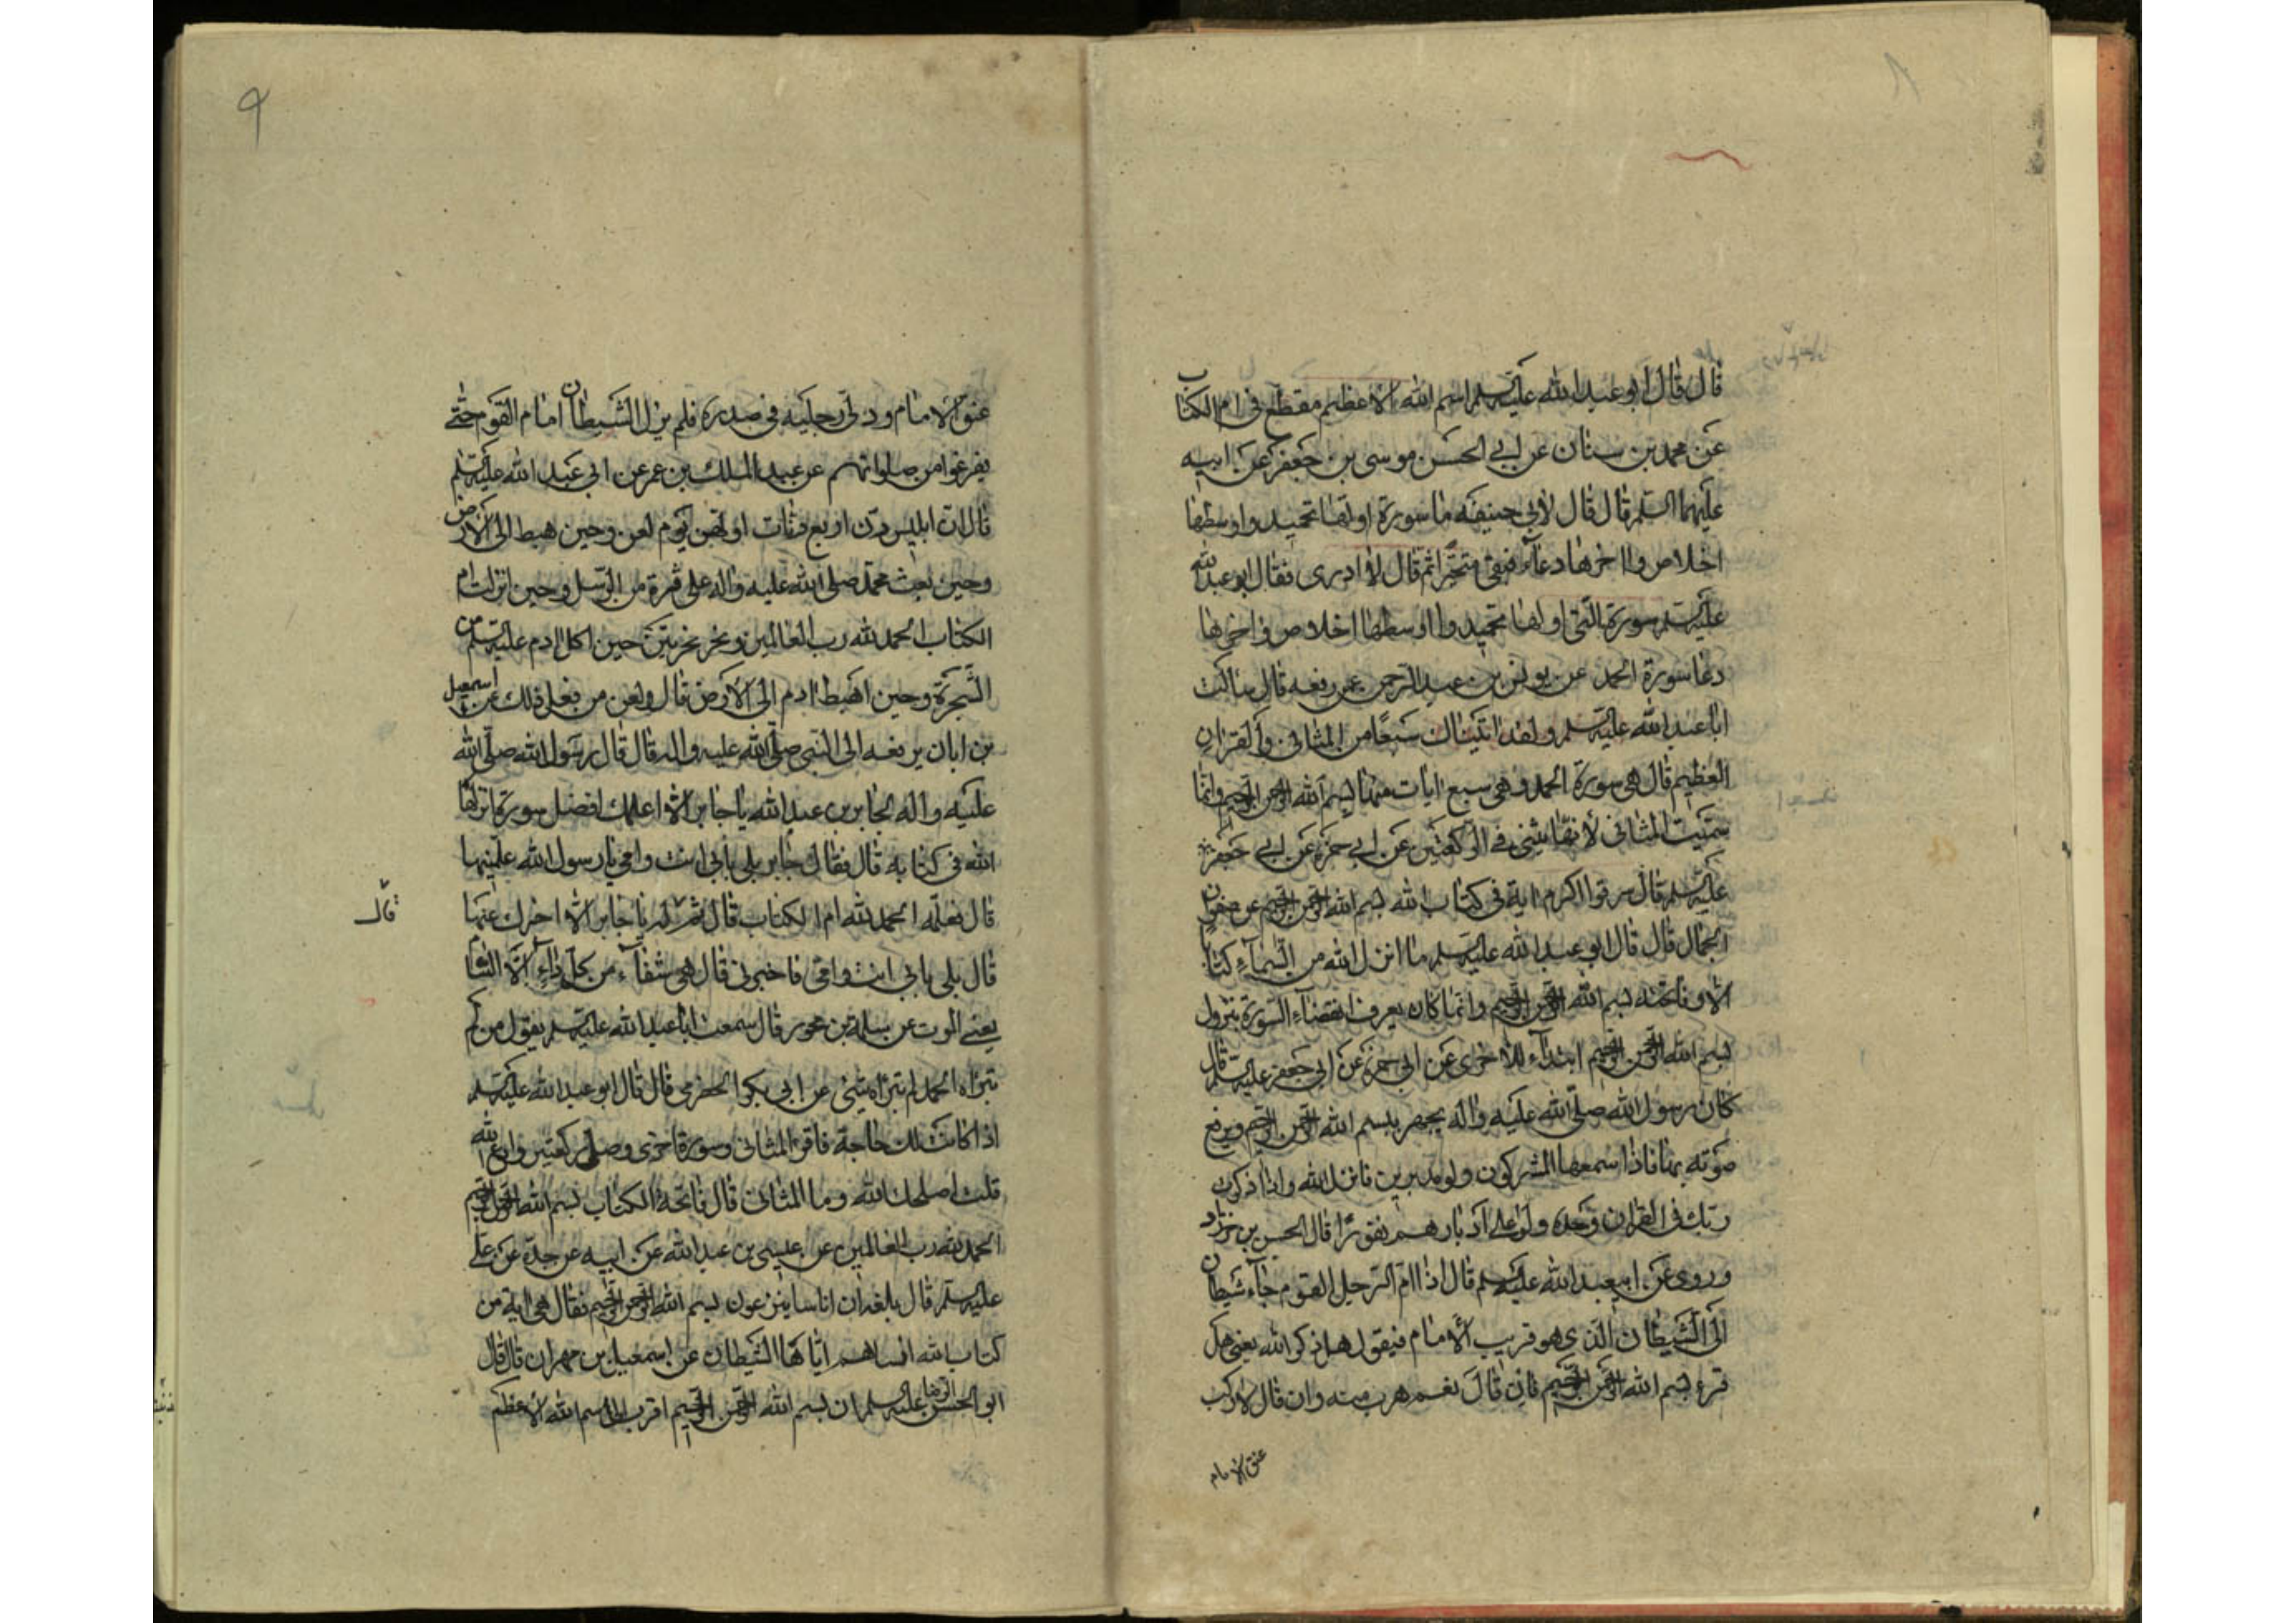 ٨
قال قال ابو عبد الله عليه السلم اسم الله الاعظم مقطع فى ام الكتاب
عن محمد بن سنان عن ابى الحسن موسى بن جعفر عن ابيه
عليهما السلم قال قال لابى حنيفه ما سورة اولها تحميد واوسطها
اخلاص واخرها دعاء فبقى متحيرا ثم قال لا ادرى فقال ابو عبد الله
عليه السلم سورة التى اولها تحميد واوسطها اخلاص واخرها
دعا سورة الحمد عن يونس بن عبد الرحمن عمن رفعه قال سالت
ابا عبد الله عليه السلم ولقد اتيناك سبعا من المثانى والقران
العظيم قال هى سورة الحمد وهى سبع ايات منها بسم الله الرحمن الرحيم وانما
سميت المثانى لانها يثنى فى الركعتين عن ابى حمزة عن ابى جعفر
عليه السلم قال سرقوا اكرم اية فى كتاب الله بسم الله الرحمن الرحيم عن صفوان
الجمال قال قال ابو عبد الله عليه السلم ما انزل الله من السماء كتابا
الا وفاتحته بسم الله الرحمن الرحيم وانما كان يعرف انقضاء السورة بنزول
بسم الله الرحمن الرحيم ابتداء للاخرى عن ابى حمزة عن ابى جعفر عليه السلم قال
كان رسول الله صلى الله عليه واله يجهر ببسم الله الرحمن الرحيم ويرفع
صوته بها فاذا سمعها المشركون ولو مدبرين فانزل الله واذا ذكرت
ربك فى القران وحده ولو على ادبارهم نفورا قال الحسن بن خرزاد
وروى عن ابيعبد الله عليه السلم قال اذا ام الرجل القوم جاء شيطان
الى الشيطان الذى هو قريب الامام فيقول هل ذكر الله يعنى هل
قرء بسم الله الرحمن الرحيم فان قال نعم هرب منه وان قال لا ركب
عنق الامام
٩
عنق الامام ودلى رجليه فى صدره فلم يزل الشيطان امام القوم حتى
يفرغوا من صلواتهم عن عبد الملك بن عمر عن ابى عبد الله عليه السلم
قال ان ابليس رن اربع رنات اولهن يوم لعن وحين هبط الى الارض
وحين بعث محمد صلى الله عليه واله على فترة من الرسل وحين انزلت ام
الكتاب الحمد لله رب العالمين ونخر نخرتين حين اكل ادم عليه السلم من
الشجرة وحين اهبط ادم الى الارض قال ولعن من فعل ذلك عن اسمعيل
بن ابان يرفعه الى النبى صلى الله عليه واله قال قال رسول الله صلى الله
عليه واله لجابر بن عبد الله يا جابر الا اعلمك افضل سورة انزلها
الله فى كتابه قال فقال جابر بلى بابى انت وامى يا رسول الله علمنيها
قال فعلمه الحمد لله ام الكتاب قال ثم له يا جابر الا اخبرك عنها
قال
قال بلى بابى انت وامى فاخبرنى قال هى شفاء من كل داء الا السام
يعنى الموت عن سلمة بن محرر قال سمعت ابا عبد الله عليه السلم يقول من لم
تبرئه الحمد لم تبرئه شئ عن ابى بكر الحضرمى قال قال ابو عبد الله عليه السلم
اذا كانت لك حاجة فاقرء المثانى وسورة اخرى وصل ركعتين وادع الله
قلت اصلحك الله وما المثانى قال فاتحة الكتاب بسم الله الرحمن الرحيم
الحمد لله رب العالمين عن عيسى بن عبد الله عن ابيه عن جده عن على
عليه السلم قال بلغه ان اناسا ينزعون بسم الله الرحمن الرحيم فقال هى اية من
كتاب الله انساهم اياها الشيطان عن اسمعيل بن مهران قال قال
ابو الحسن الرضا عليه السلم ان بسم الله الرحمن الرحيم اقرب الى اسم الله الاعظم